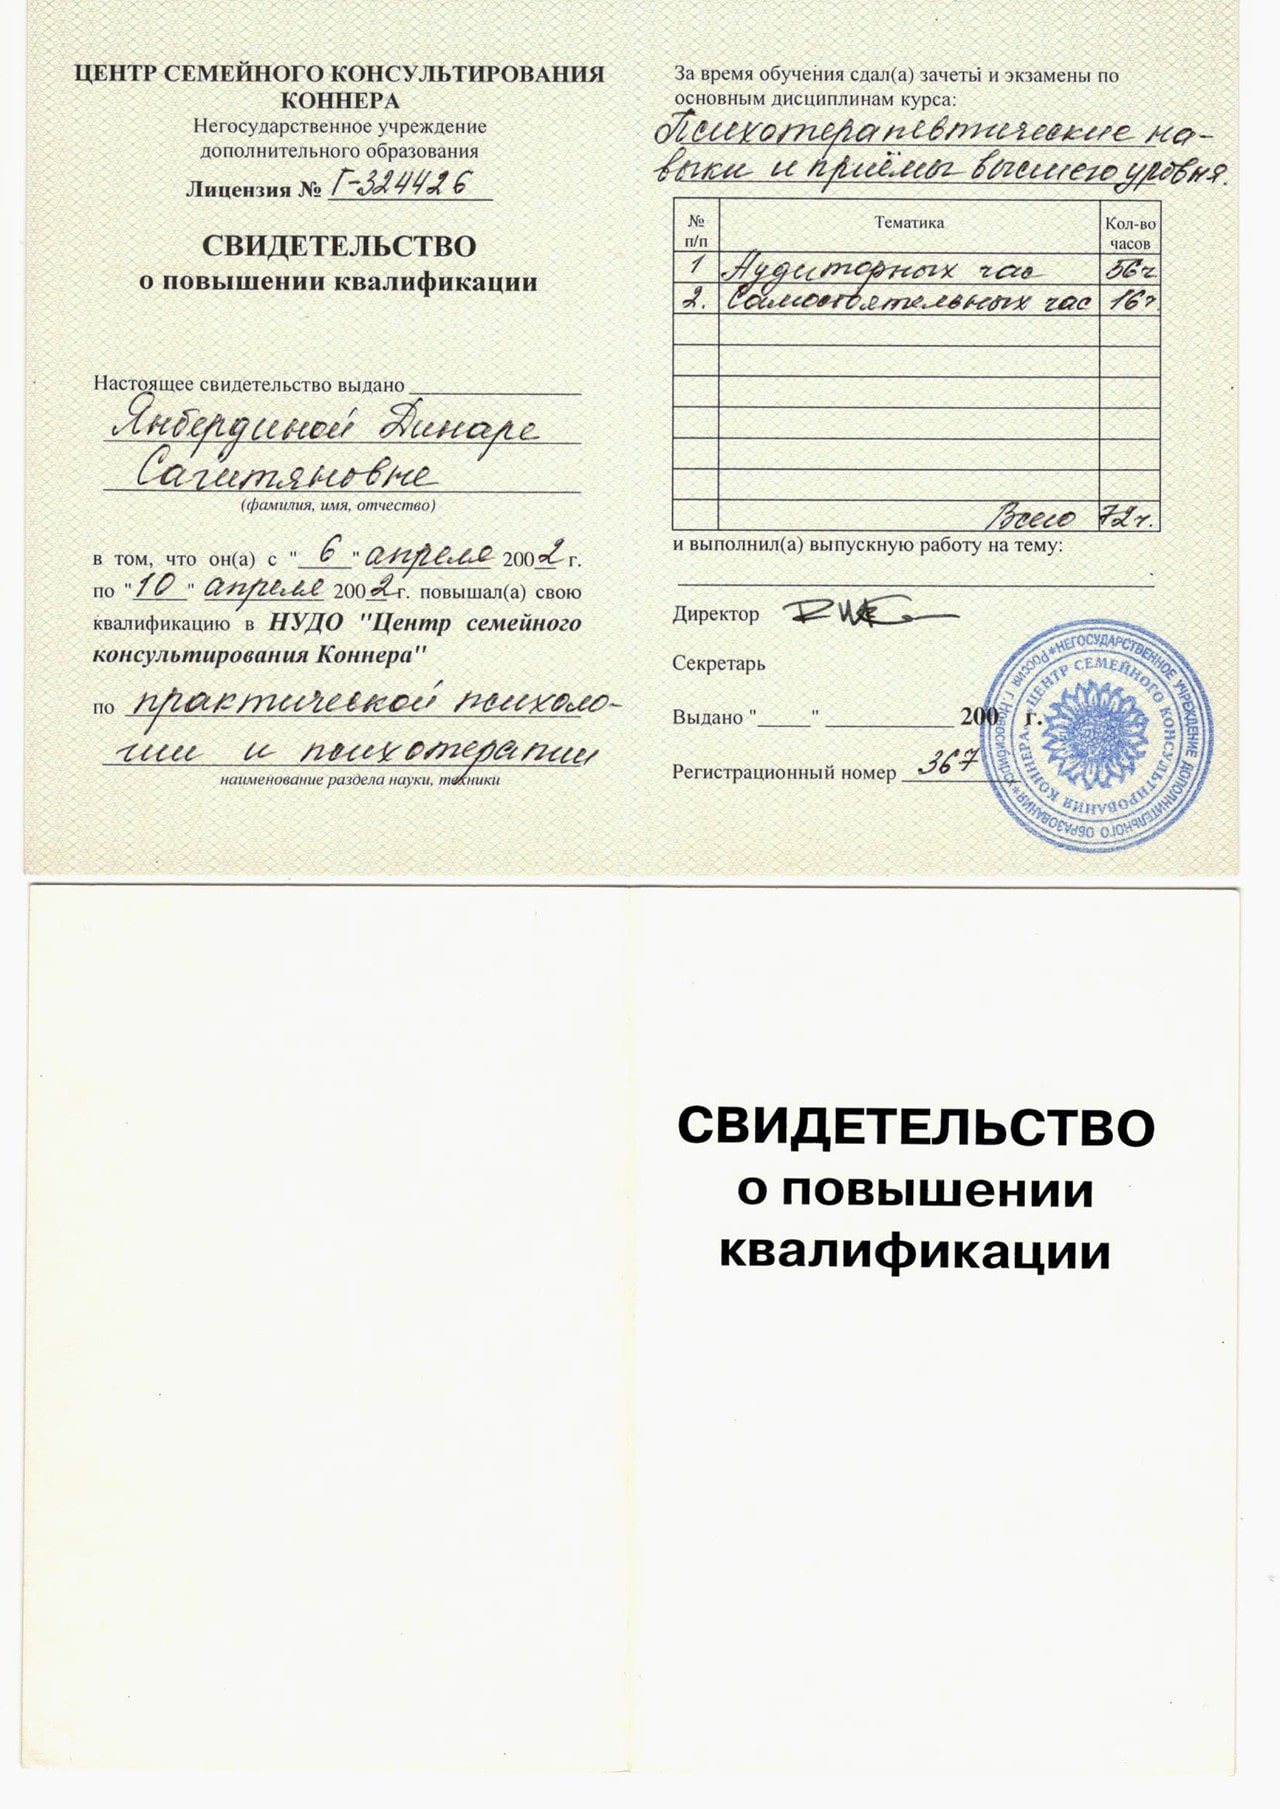 ЦЕНТР СЕМЕЙНОГО КОНСУЛЬТИРОВАНИЯ
КОННЕРА
Негосударственное учреждение
дополнительного образования
Лицензия № Г-324426
СВИДЕТЕЛЬСТВО
о повышении квалификации
Настоящее свидетельство выдано
Янбердиной Динаре
Сагитяновне
(фамилия, имя, отчество)
в том, что он(а) с "6" апреля 2002 г.
по "10" апреля 2002 г. повышал(а) свою
квалификацию в НУДО "Центр семейного
консультирования Коннера"
по практической психоло-
гии и психотерапии
наименование раздела науки, техники
За время обучения сдал(а) зачеты и экзамены по
основным дисциплинам курса:
Психотерапевтические на-
выки и приёмы высшего уровня.
№ п/п Тематика Кол-во часов
1 Аудиторных час 56ч
2. Самостоятельных час 16ч.
Всего 72ч.
и выполнил(а) выпускную работу на тему:
Директор
Секретарь
Выдано "_____" ____________ 200 г.
Регистрационный номер 367
РОССИЯ Г. НОВОСИБИРСК * НЕГОСУДАРСТВЕННОЕ УЧРЕЖДЕНИЕ ДОПОЛНИТЕЛЬНОГО ОБРАЗОВАНИЯ *
ЦЕНТР СЕМЕЙНОГО КОНСУЛЬТИРОВАНИЯ КОННЕРА
СВИДЕТЕЛЬСТВО
о повышении
квалификации